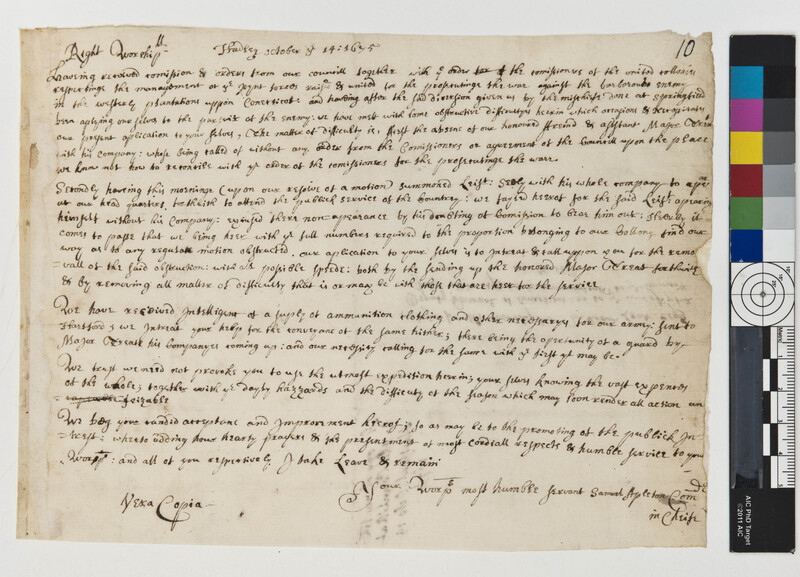 10
Right Worship:ll Hadley october ye 14: 1675
Haveing received comission & orders from our councill together with ye order of the comisioners of the united collonies
respecting the management of ye joynt forces raised & united to the prosecuting the war against the barbarous enemy
in the westerly plantations upon Conecticot and having after the sad diversion given us by the mischiefe done at springfield
been applying our selves to the pursuit of the enemy: we have met with some obstructive difficultyes herin which occasions & necessitates
our present application to your selves, The matter of difficulty is, first the absence of our honoured ffreind & assistant Major Treat
with his company: whose being called of without any order from the Comissioners or agreement of the Councill upon the place
we know not how to reconcile with ye order of the comissioners for the prosecuting the war.
Secondly having this morning (upon our resolve of a motion) summoned Leift: Seely with his whole company to apear
at our head quarters, to attend the publick service of the Country: the said Leift: apeares
himself without his Company: excused there non-apearance by his wanting of Comission to bear him out: Hereby it
comes to passe that we being here with ye full numbers required to the proportion belonging to our Collony find our
way as to any regular motion obstructed. our application to your selves is to Intreat & call upon you for the remo-
-vall of the said obstruction: with all possible speede: both by the sending up the honored Major Treat forthwith
& by removing all matter of difficulty that is or may be with those that are here for the service
We have received Intelligenc of a supply of ammunition clothing and other necessaryes for our army: sent to
Hartford; we intreat your help for the conveyance of the same hither; there being the opertunity of a guard by
Major Treats his Companyes coming up: and our necessity calling for the same with ye first yt may be.
We trust we need not provoke you to use the utmost expedition herin; your selves knowing the vast expences
of the whole; together with ye dayly hazzards and the difficulty of the season which may soon render all action un
-feizable
We beg your candid acceptance and Improvement hereof; so as may be to the promoting of the publick In-
-trest: whereto adding our hearty prayers & the presentment of most cordiall respects & humble service to your
Worps: and all of you respectively I take Leave & remain
Your Worps most humble servant Samuel Apleton Comdr
in Cheife
Vera Copia